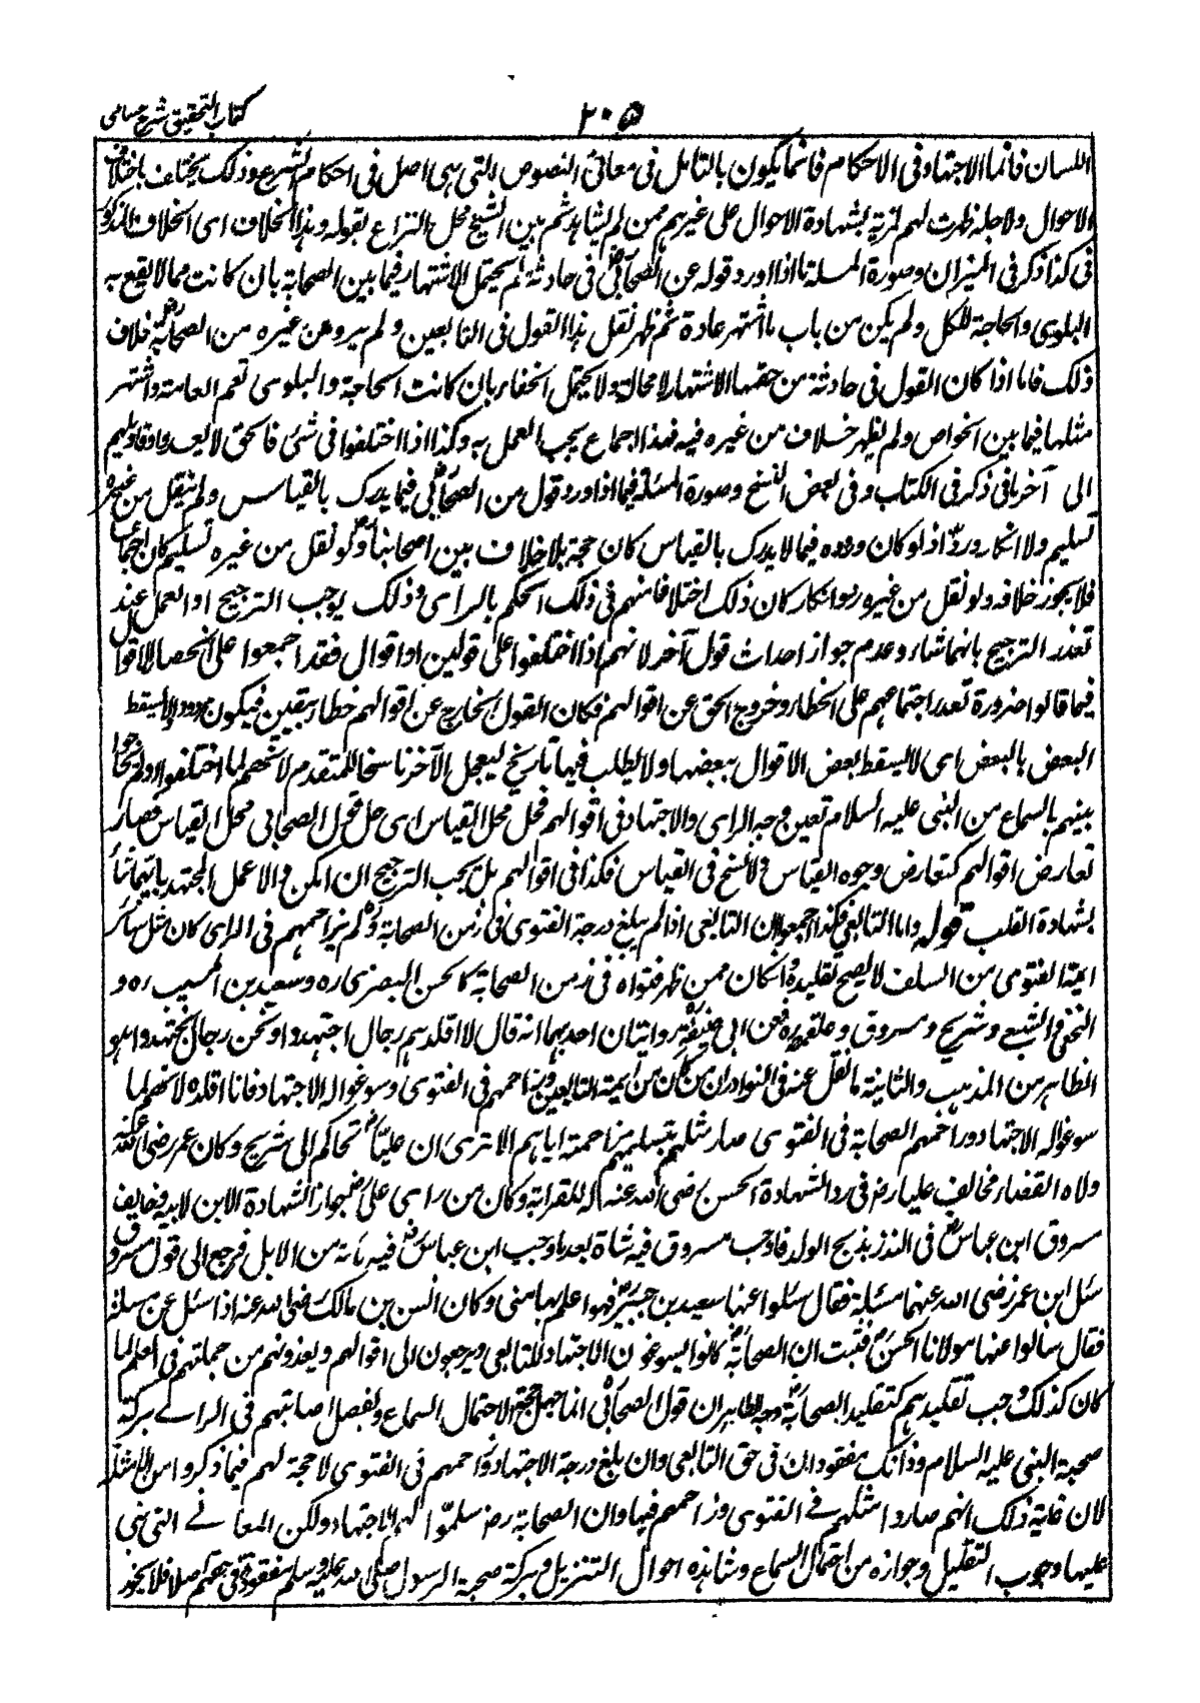 كتاب التحقيق شرح حسامی
٢٠٥
اللسان فانما الاجتهاد فى الاحكام فانما يكون بالتامل فى معانى النصوص التى هى اصل فى احكام الشرع وذلك يختلف باختلاف
الاحوال ولاجله ظهرت لهم مزية بشهادة الاحوال على غيرهم ممن لم يشاهد ثم بين الشيخ محل النزاع بقوله وهذا الخلاف اى الخلاف المذكور
فى كذا ذكر فى الميزان وصورة المسئلة ما اذا ورد قوله عن الصحابى فى حادثة لم يحتمل الاشتهار فيما بين الصحابة بان كانت مما لا يقع به
البلوى والحاجة للكل ولم يكن من باب ما اشتهر عادة ثم ظهر نقل هذا القول فى التابعين ولم يرو عن غيره من الصحابة خلاف
ذلك فاما اذا كان القول فى حادثة من حقها الاشتهار لا محالة ولا يحتمل الخفاء بان كانت الحاجة والبلوى تعم العامة واشتهر
مثلها فيما بين الخواص ولم يظهر خلاف من غيره فيه فهذا اجماع يجب العمل به وكذا اذا اختلفوا فى شئ فالحق لا يعدو اقاويلهم
الى آخر ما فى ذكر فى الكتاب وفى بعض النسخ وصورة المسئلة فيما اذا ورد قول من الصحابى فيما يدرك بالقياس ولم ينقل من غيره
تسليم ولا انكار ورد اذ لو كان وروده فيما لا يدرك بالقياس كان حجة بلا خلاف بين اصحابنا ولو نقل من غيره تسليم كان اجماعا
فلا يجوز خلافه ولو نقل من غيره رد وانكار كان ذلك اختلافا منهم فى ذلك الحكم بالراى وذلك يوجب الترجيح او العمل عند
تعذر الترجيح بايهما شاء وعدم جواز احداث قول آخر لانهم اذا اختلفوا على قولين او اقوال فقد اجمعوا على انحصار الاقوال
فيما قالوا ضرورة تعذر اجتماعهم على الخطاء وخروج الحق عن اقوالهم فكان القول الخارج عن اقوالهم خطاء بيقين فيكون مردودا لا يسقط
البعض بالبعض اى لا يسقط بعض الاقوال ببعضها ولا يطلب فيها تاريخ ليجعل الآخر ناسخا للمتقدم لانهم لما اختلفوا ولم يتحاجوا
بينهم بالسماع من النبى عليه السلام تعين وجه الراى والاجتهاد فى اقوالهم فحل محل القياس اى حل قول الصحابى محل القياس فصار
تعارض اقوالهم كتعارض وجوه القياس ولا نسخ فى القياس فكذا فى اقوالهم بل يجب الترجيح ان امكن والا عمل المجتهد بايهما شاء
بشهادة القلب قوله واما التابعى فكذا اجمعوا ان التابعى اذا لم يبلغ درجة الفتوى فى زمن الصحابة ولم يزاحمهم فى الراى كان مثل سائر
ائمة الفتوى من السلف لا يصح تقليده وان كان ممن ظهر فتواه فى زمن الصحابة كالحسن البصرى ره وسعيد بن المسيب ره و
النخعى والشعبى وشريح ومسروق وعلقمة ره فعن ابى حنيفة روايتان احدهما انه قال لا اقلدهم رجال اجتهدوا ونحن رجال نجتهد وهو
الظاهر من المذهب والثانية ما نقل عنه فى النوادر ان من كان من ائمة التابعين وزاحمهم فى الفتوى وسوغوا له الاجتهاد فانا اقلده لانهم لما
سوغوا له الاجتهاد وزاحمهم الصحابة فى الفتوى صار مثلهم بتسليمهم مزاحمة اياهم الا ترى ان عليا تحاكم الى شريح وكان عمر رضى الله عنه
ولاه القضاء فخالف عليا رض فى رد الشهادة الحسن رضى الله عنه له للقرابة وكان من راى على رض جواز شهادة الابن لابيه وخالف
مسروق ابن عباس فى النذر بذبح الولد فاوجب مسروق فيه شاة بعدما اوجب ابن عباس فيه مائة من الابل فرجع الى قول مسروق
سئل ابن عمر رضى الله عنهما مسئلة فقال سئلوا عنها سعيد بن جبير فهو اعلم بها منى وكان انس بن مالك رضى الله عنه اذا سئل عن مسئلة
فقال سالوا عنها مولانا الحسن فثبت ان الصحابة كانوا يسوغون الاجتهاد للتابعى ويرجعون الى اقوالهم ويعدونهم من جملتهم فى العلم لما
كان كذلك وجب تقليدهم كتقليد الصحابة وجه الظاهر ان قول الصحابى انما جعل حجة لاحتمال السماع ولفضل اصابتهم فى الراى ببركة
صحبة النبى عليه السلام وذانك مفقودان فى حق التابعى وان بلغ درجة الاجتهاد وزاحمهم فى الفتوى لا حجة لهم فيما ذكروا من الامثلة
لان غاية ذلك انهم صاروا مثلهم فى الفتوى وزاحموهم فيها وان الصحابة رض سلموا لهم الاجتهاد ولكن المعانى التى بنى
عليها وجوب التقليد وجوازه من احتمال السماع ومشاهدة احوال التنزيل وبركة صحبة الرسول صلى الله عليه وسلم مفقودة فى حقهم اصلا فلا يجوز